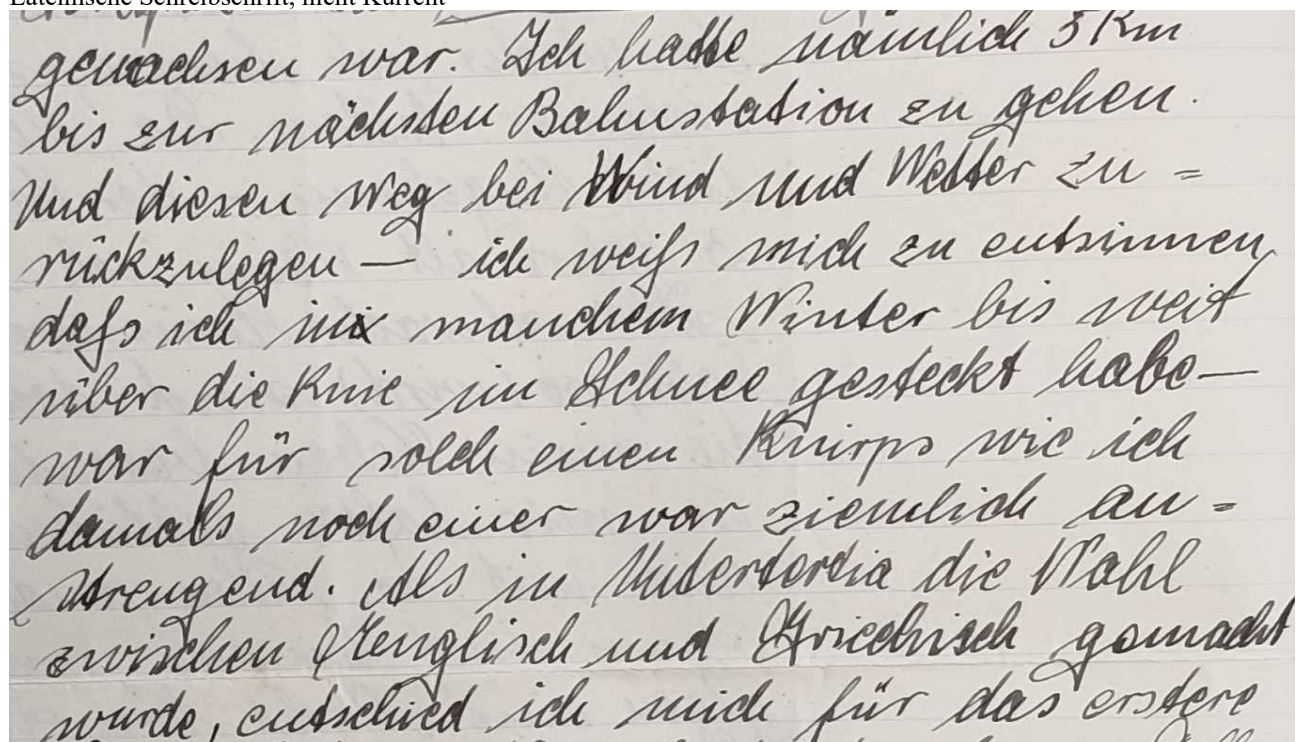 Lateinische Schreibschrift, nicht Kurrent
gewachsen war. Ich hatte nämlich 3 Km
bis zur nächsten Bahnstation zu gehen.
Und diesen Weg bei Wind und Wetter zu =
rückzulegen — ich weiß mich zu entsinnen,
daß ich in manchem Winter bis weit
über die Knie im Schnee gesteckt habe —
war für solch einen Knirps wie ich
damals noch einer war ziemlich an =
strengend. Als in Untertertia die Wahl
zwischen Englisch und Griechisch gemacht
wurde, entschied ich mich für das erstere